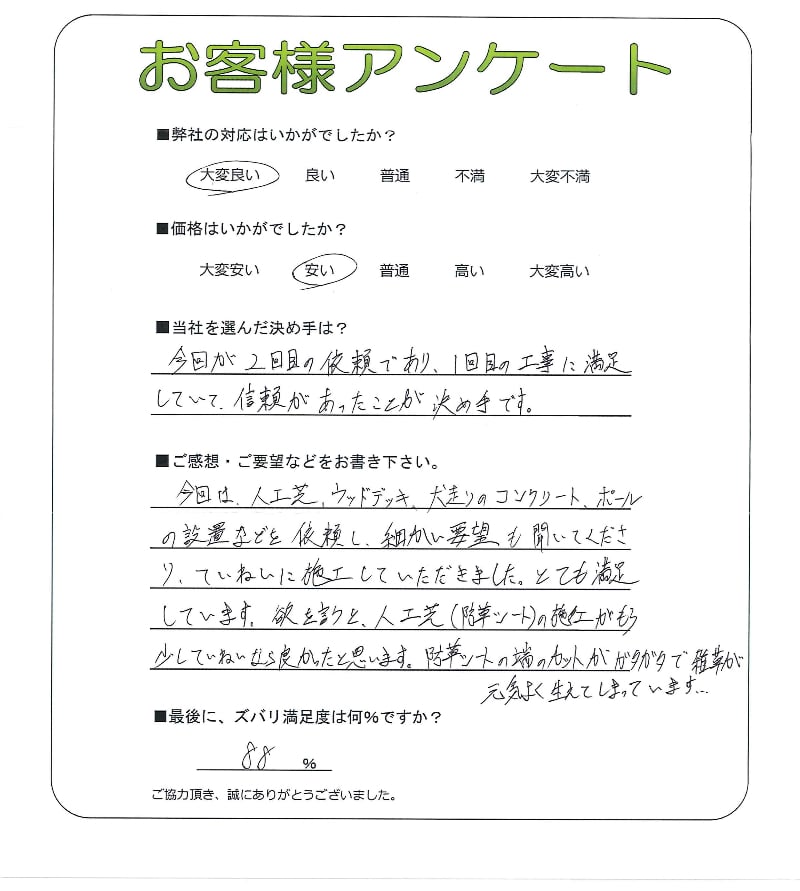 お客様アンケート
■弊社の対応はいかがでしたか？
大変良い 良い 普通 不満 大変不満
■価格はいかがでしたか？
大変安い 安い 普通 高い 大変高い
■当社を選んだ決め手は？
今回が2回目の依頼であり、1回目の工事に満足
していて、信頼があったことが決め手です。
■ご感想・ご要望などをお書き下さい。
今回は、人工芝、ウッドデッキ、犬走りのコンクリート、ポール
の設置などを依頼し、細かい要望も聞いてくださ
り、ていねいに施工していただきました。とても満足
しています。欲を言うと、人工芝(防草シート)の施工がもう
少していねいなら良かったと思います。防草シートの端のカットがガタガタで雑草が
元気よく生えてしまっています…
■最後に、ズバリ満足度は何％ですか？
88 ％
ご協力頂き、誠にありがとうございました。